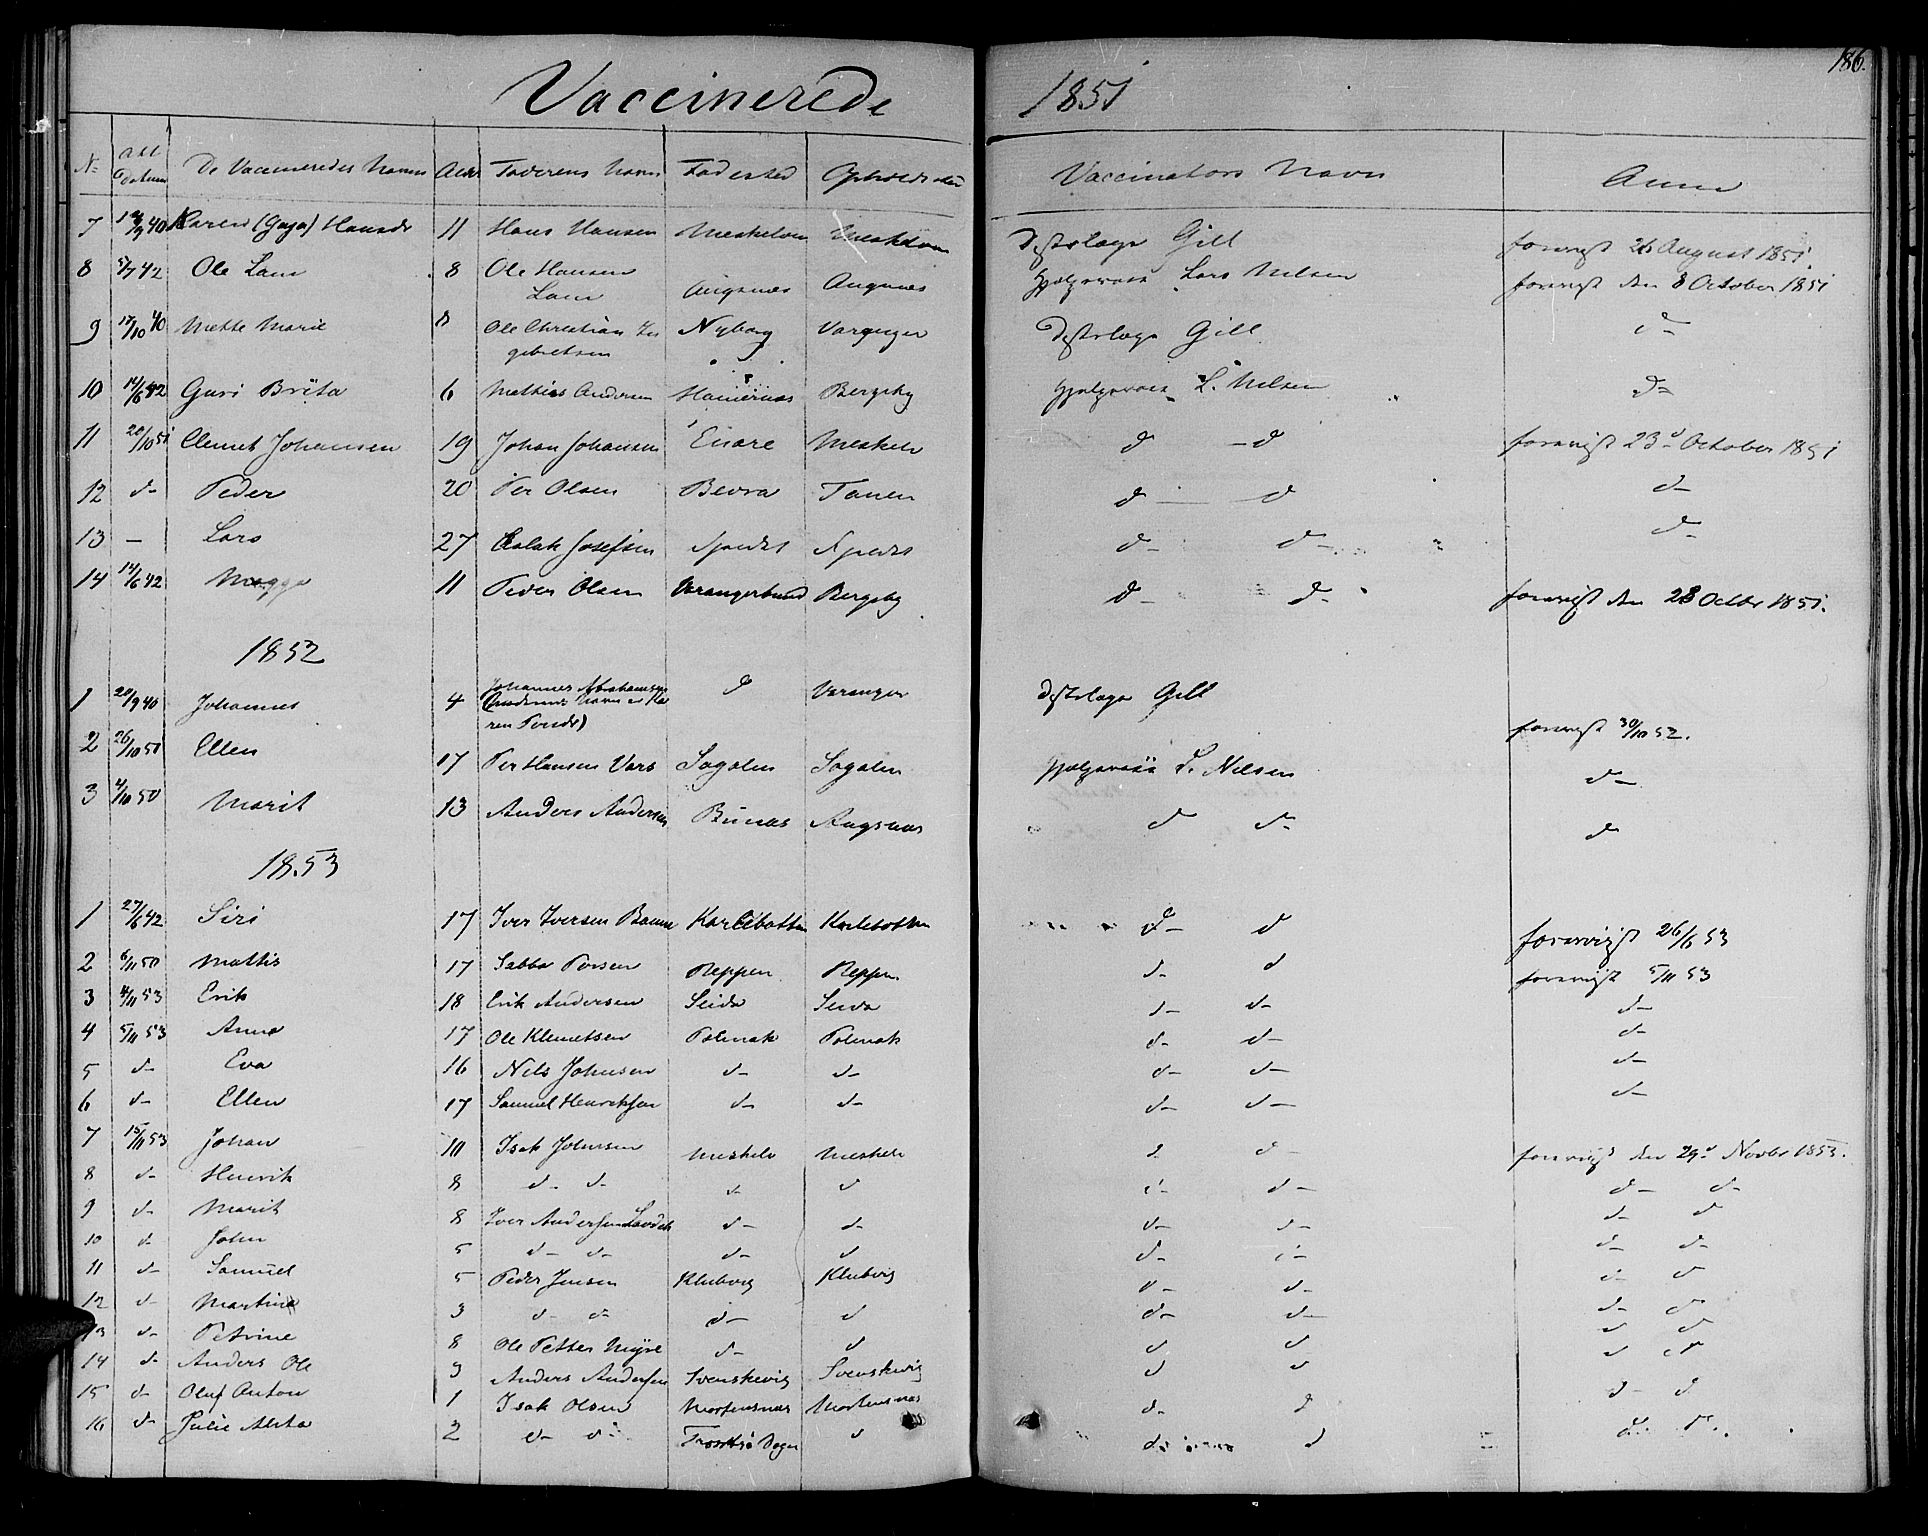 186.
Vaccinerede 1851
No Att datum De Vaccineredes Navne Alder Faderens Navn Fødested Opholdssted Vaccinators Navn Anm
7 12/9 40 Karen (Gaja) Hansdr 11 Hans Hansen Meskelven Meskelven Distrlæge Gill forevist 26 August 1851.
8 5/7 42 Ole Lam 8 Ole Hansen Lam Angsnæs Angsnæs Lars Nilsen forevist den 8 October 1851
9 17/10 40 Mette Marie 8 Ole Christian In gebretsen Nyborg Varanger Distrlæge Gill d-
10 14/6 42 Guri Brita 6 Mathis Andersen Bergeby L. Nilsen d-
11 20/10 51 Clemet Johansen 19 Johan Johansen Enare Meskelv d -d forevist 23d October 1851
12 d- Peder 20 Per Olsen Bevra Tanen d d d-
13 - Lars 27 Aslak Josefsen d- d- d-
14 14/6 42 Magga 11 Peder Olsen Varangerbund Bergeby d- d- forevist den 28 Octbr 1851.
1852
1 20/9 40 Johannes 4 Johannes Abrahamsen (Moderens Navn er Ka ren Persdr) d Varanger Distrlæge Gill
2 26/10 51 Ellen 17 Per Hansen Vars Sagolen Sagolen L. Nilsen forevist 30/10 52. d-
3 4/10 50 Marit 13 Anders Andersen Bunæs Angsnæs d d- d-
1853
1 27/6 42 Siri 17 Iver Iversen Karlebotten Karlebotten d- d forevist 26/6 53
2 6/11 50 Mattis 17 Sabba Persen Reppen Reppen d- d forevist 5/11 53
3 4/11 53 Erik 18 Erik Andersen Seida Seida d- d- d-
4 5/11 53 Anna 17 Ole Klemetsen Polmak Polmak d- d- d-
5 d- Eva 16 Nils Johnsen d- d- d- d- d-
6 d- Ellen 17 Samuel Henriksen d- d- d- d- d-
7 15/11 53 Johan 10 Isak Johnsen Meskelv Meskelv d d- forevist den 29d Novbr 1853.
8 d- Henrik 8 d- d- d- d d- d- d- d-
9 d- Marit 8 Iver Andersen d- d- d- d- d- d
10 d- John 5 d- d- d- d d- d- d- d-
11 d- Samuel 5 Peder Jensen Klubvig Klubvig d- d- d- d
12 d- Martine 3 d- d- d- d d- d- d- d
13 d- Petrine 8 Ole Petter Myre d- d d d d d
14 d- Anders Ole 3 Anders Andersen Svenskevig Svenskevig d d d d
15 d- Oluf Anton 1 Isak Olsen Mortensnæs Mortensnæs d- d d- d
16 d- Julie 2 d- d- Tromsø d d d d